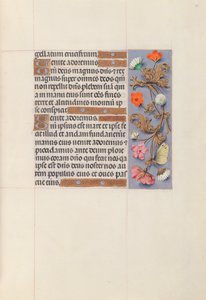 Venite adoremus.
Qm̄ deus magnus dn̄s et rex
magnus super omnes deos qm̄
non repellit dn̄s plebem suā qr̄ in
manu eius sūt oēs fines
terre et altitudines montiū ip̄
se conspic
Venite adoremus.
Qm̄ ipsius est mare et ipse fe
cit illud et aridam fundaue
manus eius uenite adoremus et
procidamus ante deum plore
mus coram dn̄o qui fecit nos quia
ipse est dn̄s deus noster nos au
tem populus eius et oues pas
cue eius.